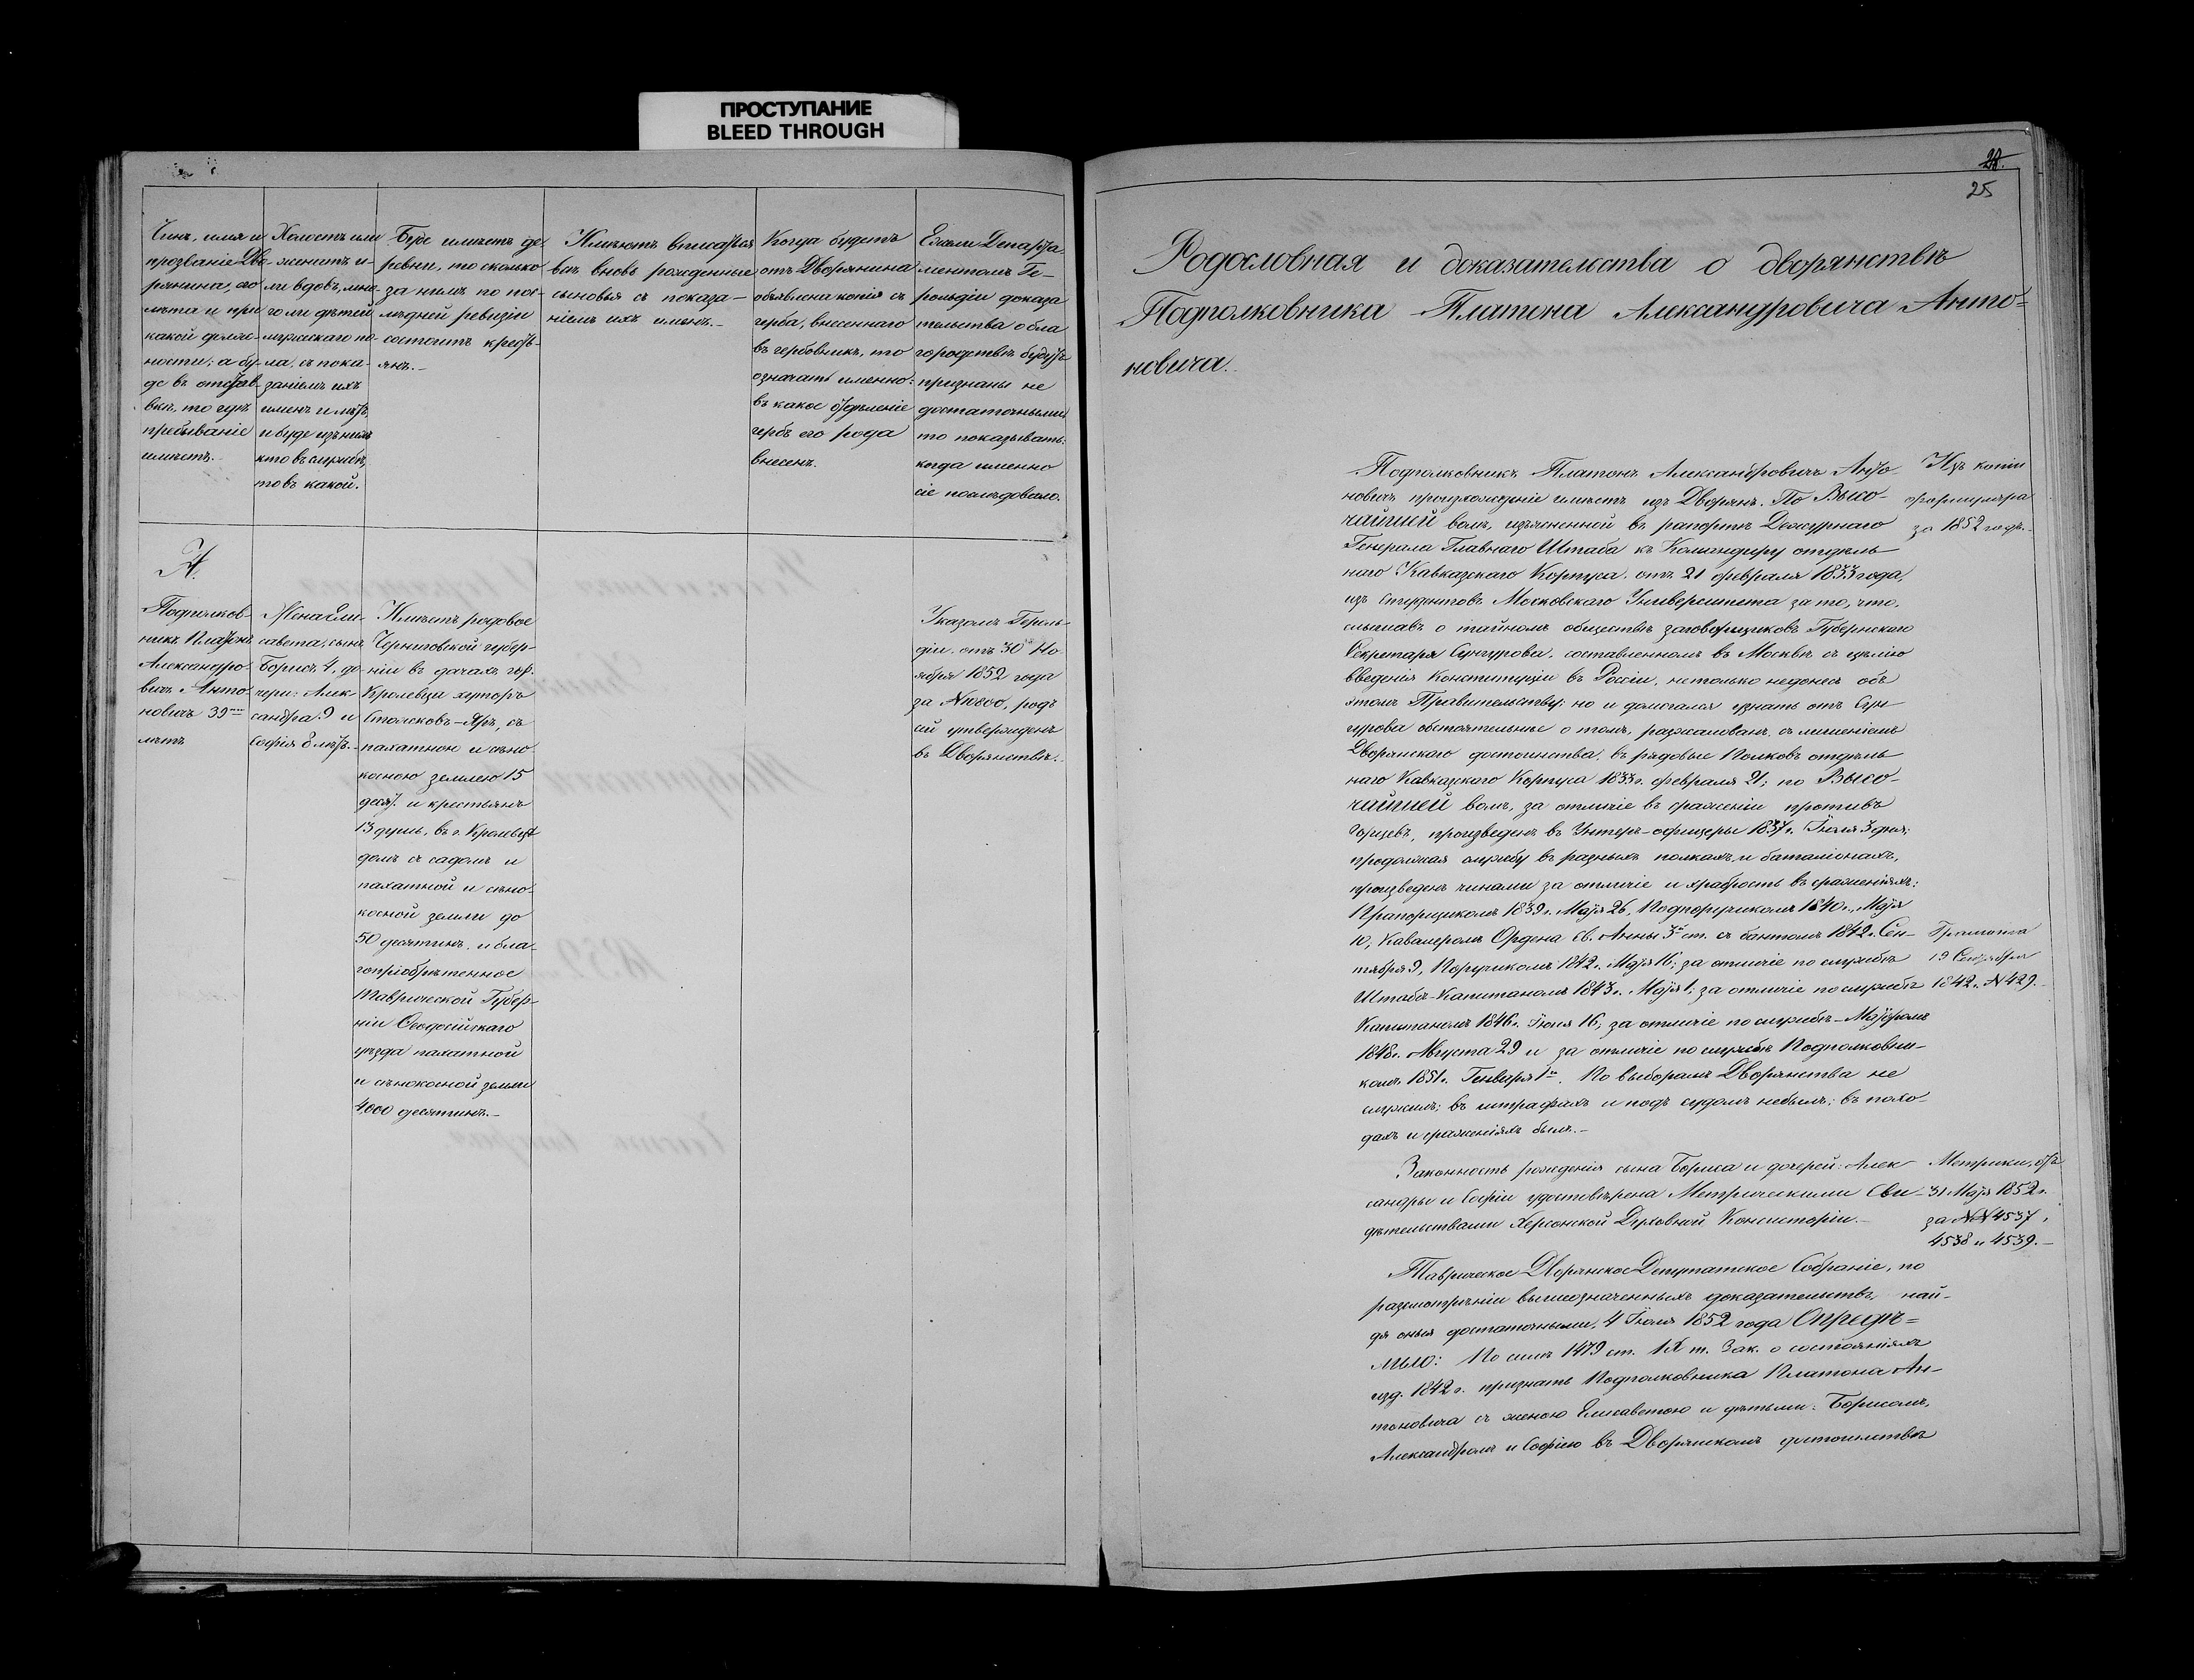 ПРОСТУПАНИЕ
BLEED THROUGH
Чинъ, имя и
прозваніе Дво-
рянина, его
лѣта и при
какой долж-
ности; а бу-
де въ отстав-
вкѣ, то гдѣ
пребываніе
имѣетъ.
Холостъ или
женатъ и-
ли вдовъ, мно-
го ли дѣтей
мужескаго по-
ла, съ пока-
заніемъ ихъ
именъ и лѣтъ,
и буде изъ нихъ
кто въ службѣ,
то въ какой.
Буде имѣетъ де-
ревни, то сколько
за нимъ по пос-
лѣдней ревизіи
состоитъ кресть-
янъ.-
Имѣютъ вписаться
всѣ вновь рожденные
сыновья съ показа-
ніемъ ихъ именъ.-
Когда будетъ
отъ Дворянина
объявлена копія съ
герба, внесеннаго
въ гербовникъ, то
означать именно:
въ какое отдѣленіе
гербъ его рода
внесенъ.
Ежели Департа-
ментомъ Ге-
рольдіи доказа
тельства о бла
городствѣ будутъ
признаны не
достаточными
то показывать:
когда именно
сіе послѣдовало.
А.
Подполков-
никъ Платонъ
Александро-
вичъ Анто-
новичъ 39
лѣтъ
Жена Ели-
савета, сынъ
Борисъ 4, до-
чери: Алек-
сандра 9 и
Софія 8 лѣтъ.-
Имѣетъ родовое
Черниговской губер-
ніи въ дачахъ гор.
Кролевца хуторъ
Стожковъ-Яръ, съ
пахатною и сѣно-
косною землею 15
десят. и крестьянъ
13 душъ, въ г. Кролевцѣ
домъ съ садомъ и
пахатной и сѣно-
косной земли до
50 десятинъ. и бла-
гопріобрѣтенное
Таврической Губер-
ніи Ѳеодосійскаго
уѣзда пахатной
и сѣнокосной земли
4,000 десятинъ.-
Указомъ Героль-
діи отъ 30 Но-
ября 1852 года
за №10800, родъ
сій утвержденъ
въ Дворянствѣ.-
25
Родословная и доказательства о дворянствѣ
Подполковника Платона Александровича Анто-
новича.
Подполковникъ Платонъ Александровичъ Анто-
новичъ происхожденіе имѣетъ изъ Дворянъ. По Высо-
чайшей волѣ, изъясненной въ рапортѣ Дежурнаго
Генерала Главнаго Штаба къ Командиру отдѣль-
наго Кавказскаго Корпуса отъ 21 февраля 1833 года,
изъ студентовъ Московскаго Университета за то, что,
слышавъ о тайномъ обществѣ заговорщиковъ Губернскаго
Секретаря Сунгурова, составленномъ въ Москвѣ съ цѣлію
введенія Конституціи въ Россіи, не только недонесъ объ
этомъ Правительству; но и домогался узнать отъ Сун-
гурова обстоятельнѣе о томъ, разжалованъ, съ лишеніемъ
Дворянскаго достоинства, въ рядовые Полковъ отдѣль-
наго Кавказскаго Корпуса 1833 г. февраля 21; по Высо-
чайшей волѣ, за отличіе въ сраженіи противъ
Горцевъ, произведенъ въ Унтеръ-офицеры 1837 г. Іюля 3 дня;
продолжая службу въ разныхъ полкахъ, и баталіонахъ,
произведенъ чинами за отличіе и храбрость въ сраженіяхъ:
Прапорщикомъ 1839 г. Маія 26, Подпоручикомъ 1840 г., Маія
10, Кавалеромъ Ордена Св. Анны 3й ст. съ бантомъ 1842 г. Сен-
тября 9, Поручикомъ 1842 г. Маія 16; за отличіе по службѣ
Штабсъ-Капитаномъ 1843 г. Маія 1; за отличіе по службѣ
Капитаномъ 1846 г. Іюня 16; за отличіе по службѣ - Маіоромъ
1848 г. Августа 29 и за отличіе по службѣ Подполковни-
комъ 1851 г. Генваря 1го. По выборамъ Дворянства не
служилъ; въ штрафахъ и подъ судомъ небылъ; въ похо-
дахъ и сраженіяхъ былъ.-
Изъ копіи
формуляра
за 1852 годъ.-
Грамота
19 Сентября
1842 г. №429.-
Законность рожденія сына Бориса и дочерей: Алек-
сандры и Софіи удостовѣрена Метрическими Сви-
дѣтельствами Херсонской Духовной Консисторіи.-
Метрики, отъ
31 Маія 1852 г.
за №№ 4537,
4538 и 4539.-
Таврическое Дворянское Депутатское Собраніе, по
разсмотрѣніи вышеозначенныхъ доказательствъ, най-
дя оныя достаточными, 4 Іюля 1852 года Опредѣ=
лило: По силѣ 1479 ст. IX т. Зак. о состояніяхъ
изд. 1842 г. признать Подполковника Платона Ан-
тоновича съ женою Елисаветою и дѣтьми: Борисомъ,
Александрою и Софіею въ Дворянскомъ достоинствѣ